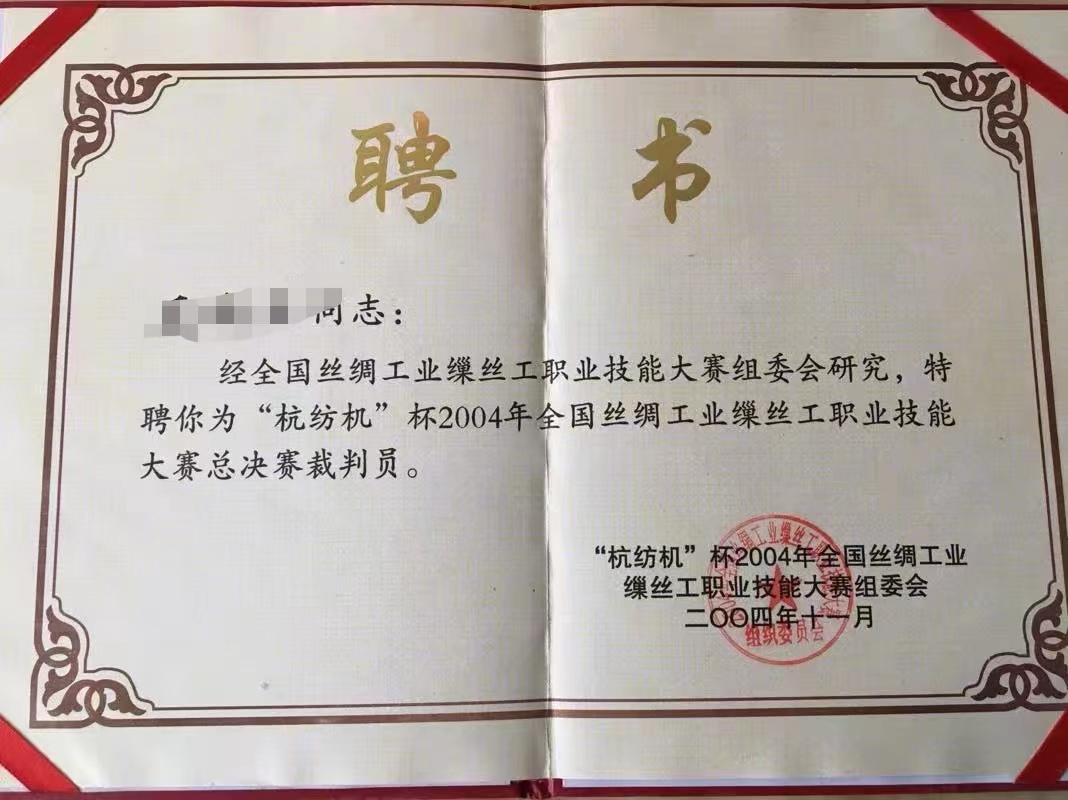 聘书
同志：
经全国丝绸工业缫丝工职业技能大赛组委会研究，特
聘你为“杭纺机”杯2004年全国丝绸工业缫丝工职业技能
大赛总决赛裁判员。
“杭纺机”杯2004年全国丝绸工业
缫丝工职业技能大赛组委会
二〇〇四年十一月
组织委员会